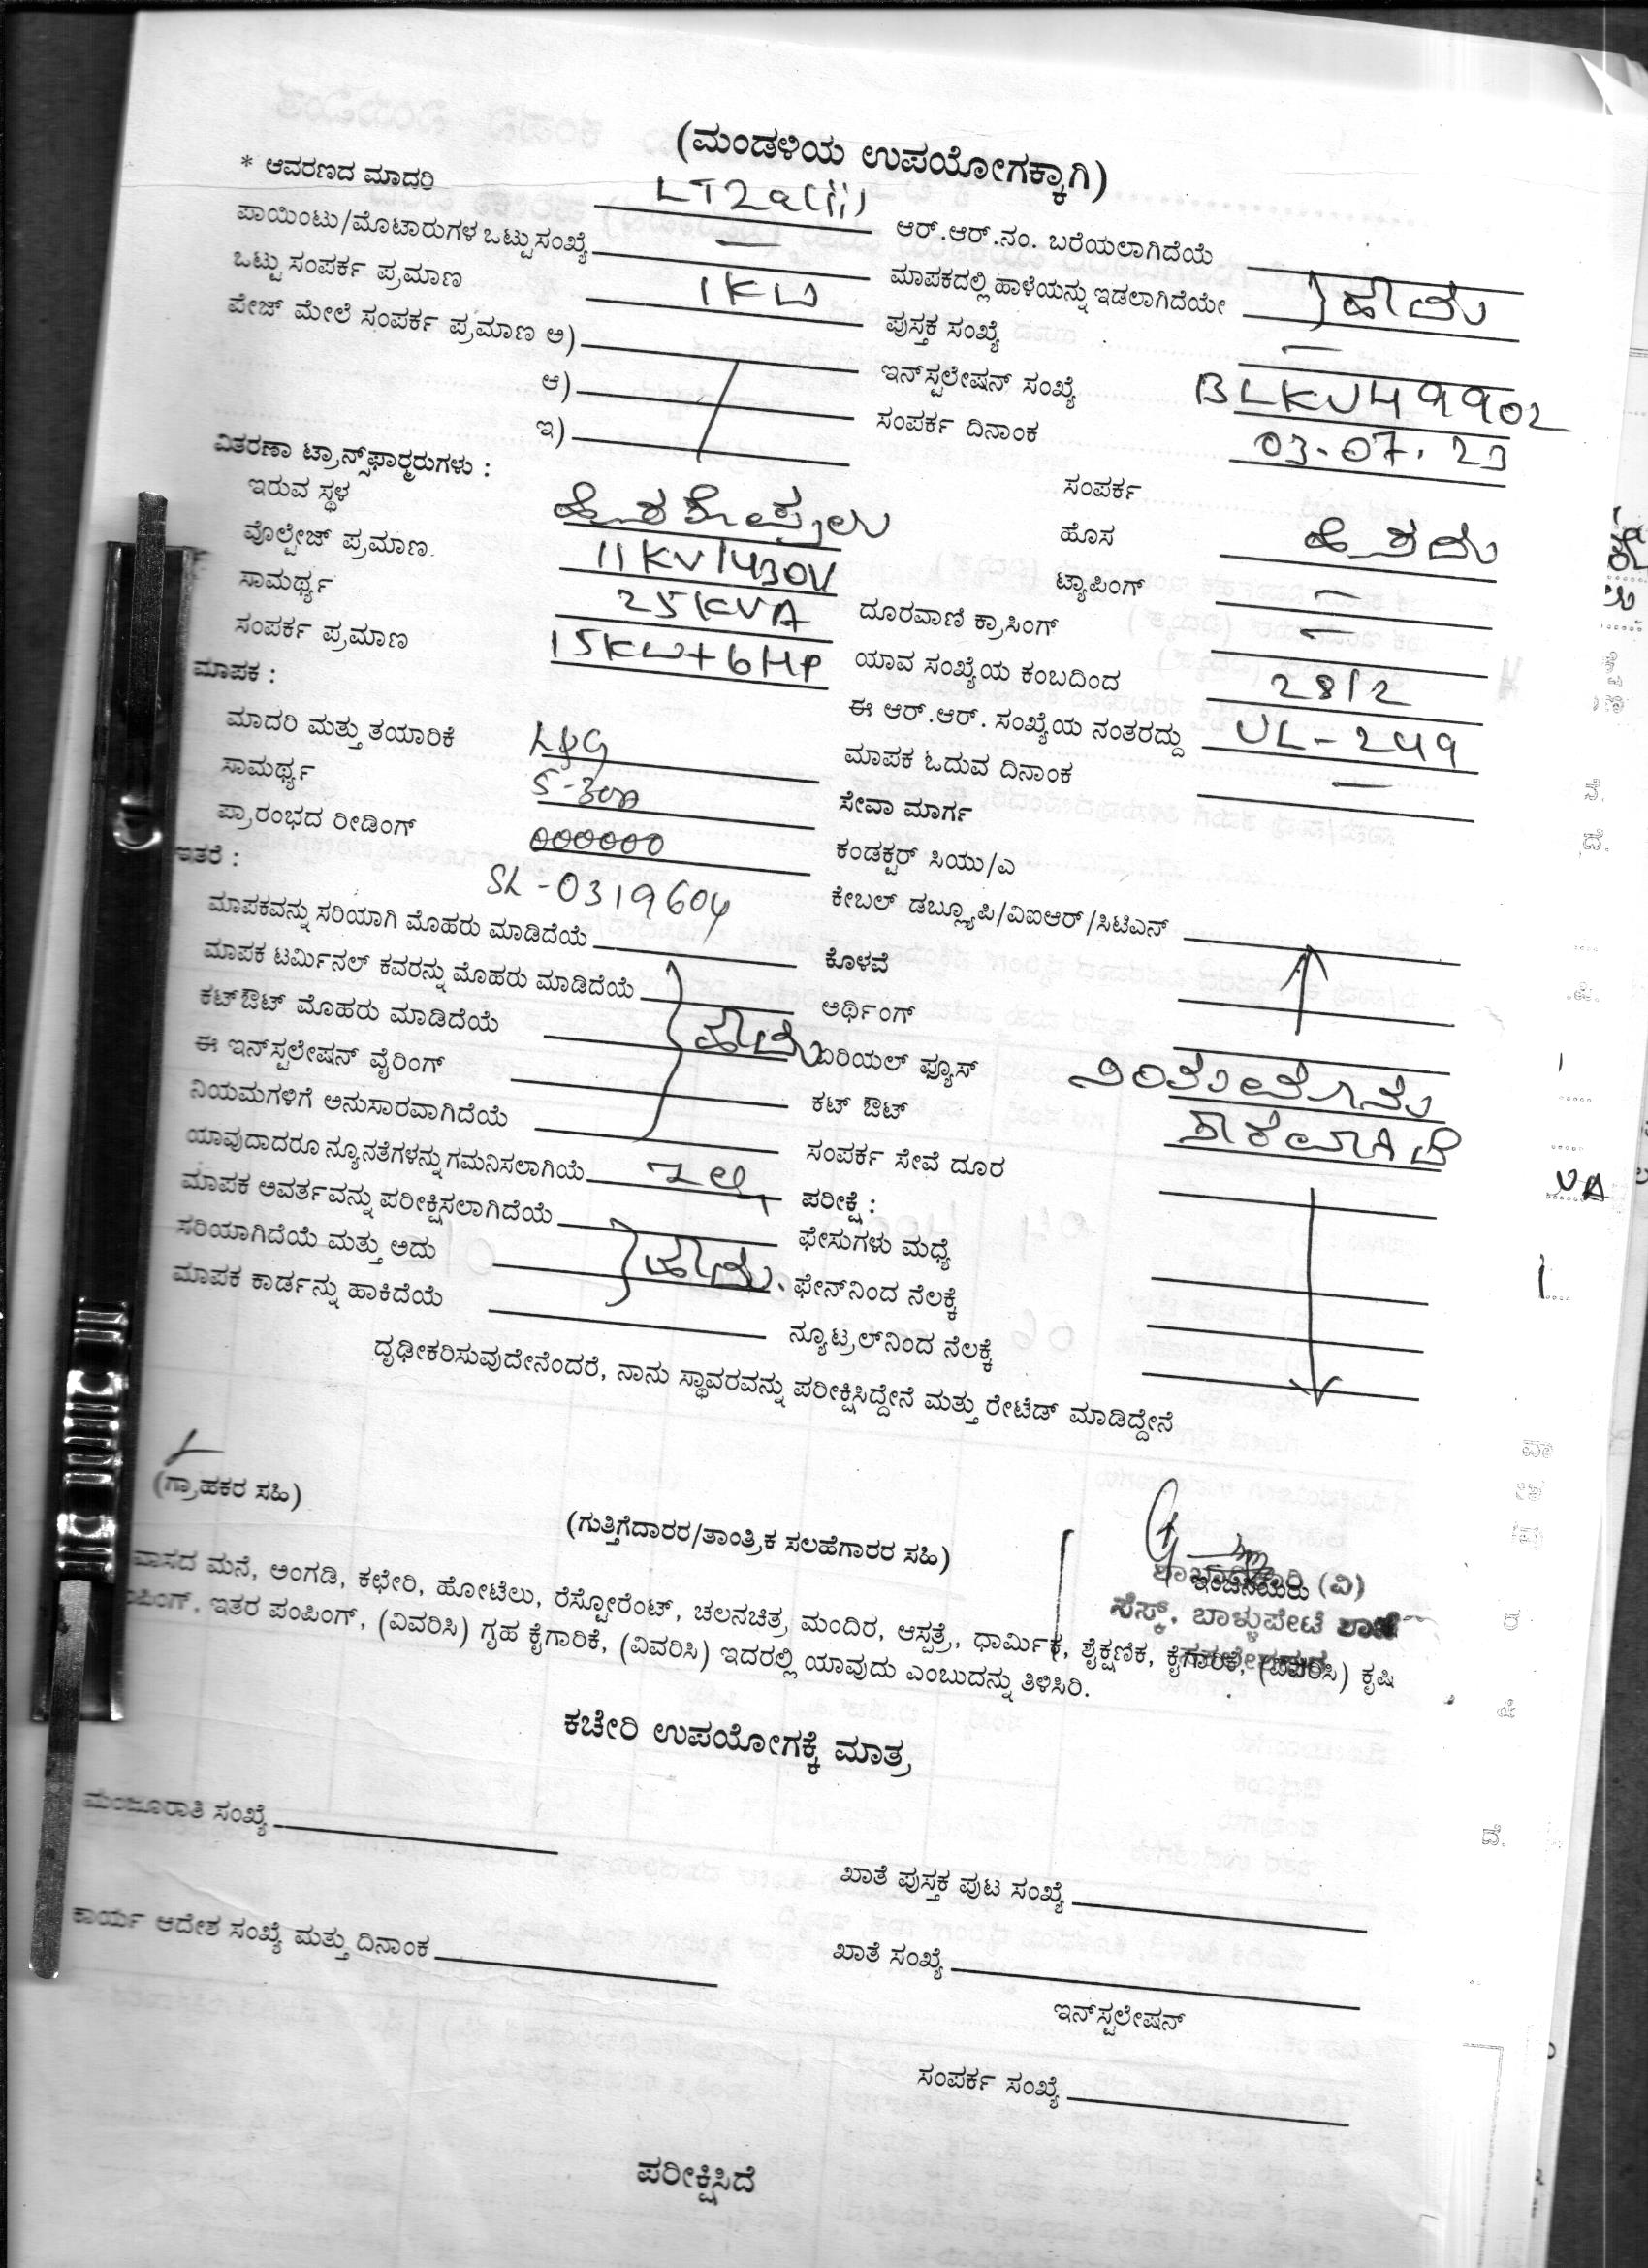 (ಮಂಡಳಿಯ ಉಪಯೋಗಕ್ಕಾಗಿ)
* ಆವರಣದ ಮಾದರಿ LT2a(ii) ಆರ್.ಆರ್.ನಂ. ಬರೆಯಲಾಗಿದೆಯೆ
ಪಾಯಿಂಟು/ಮೊಟಾರುಗಳ ಒಟ್ಟುಸಂಖ್ಯೆ — ಮಾಪಕದಲ್ಲಿ ಹಾಳೆಯನ್ನು ಇಡಲಾಗಿದೆಯೇ } ಹೌದು
ಒಟ್ಟು ಸಂಪರ್ಕ ಪ್ರಮಾಣ 1KW ಪುಸ್ತಕ ಸಂಖ್ಯೆ —
ಪೇಜ್ ಮೇಲೆ ಸಂಪರ್ಕ ಪ್ರಮಾಣ ಅ) ಇನ್‌ಸ್ಟಲೇಷನ್ ಸಂಖ್ಯೆ BLKJ49902
ಆ) ಸಂಪರ್ಕ ದಿನಾಂಕ 03-07-23
ಇ)
ವಿತರಣಾ ಟ್ರಾನ್ಸ್‌ಫಾರ್‍ಮರುಗಳು : ಸಂಪರ್ಕ
ಇರುವ ಸ್ಥಳ ಹೊಸ
ವೊಲ್ಟೇಜ್ ಪ್ರಮಾಣ. 11KV/430V ಟ್ಯಾಪಿಂಗ್ —
ಸಾಮರ್ಥ್ಯ 25KVA ದೂರವಾಣಿ ಕ್ರಾಸಿಂಗ್ —
ಸಂಪರ್ಕ ಪ್ರಮಾಣ 15KW+6HP ಯಾವ ಸಂಖ್ಯೆಯ ಕಂಬದಿಂದ 28/2
ಮಾಪಕ : ಈ ಆರ್.ಆರ್. ಸಂಖ್ಯೆಯ ನಂತರದ್ದು UL-249
ಮಾದರಿ ಮತ್ತು ತಯಾರಿಕೆ L&G ಮಾಪಕ ಓದುವ ದಿನಾಂಕ —
ಸಾಮರ್ಥ್ಯ 5-30A ಸೇವಾ ಮಾರ್ಗ
ಪ್ರಾರಂಭದ ರೀಡಿಂಗ್ 000000 ಕಂಡಕ್ಟರ್ ಸಿಯು/ಎ
ಇತರೆ : SL-0319604 ಕೇಬಲ್ ಡಬ್ಲ್ಯೂಪಿ/ವಿಐಆರ್/ಸಿಟಿಎನ್
ಮಾಪಕವನ್ನು ಸರಿಯಾಗಿ ಮೊಹರು ಮಾಡಿದೆಯೆ ಕೊಳವೆ
ಮಾಪಕ ಟರ್ಮಿನಲ್ ಕವರನ್ನು ಮೊಹರು ಮಾಡಿದೆಯೆ ಅರ್ಥಿಂಗ್
ಕಟ್‌ಔಟ್ ಮೊಹರು ಮಾಡಿದೆಯೆ } ಹೌದು ಏರಿಯಲ್ ಫ್ಯೂಸ್
ಈ ಇನ್‌ಸ್ಟಲೇಷನ್ ವೈರಿಂಗ್ ಕಟ್ ಔಟ್
ನಿಯಮಗಳಿಗೆ ಅನುಸಾರವಾಗಿದೆಯೆ ಸಂಪರ್ಕ ಸೇವೆ ದೂರ
ಯಾವುದಾದರೂ ನ್ಯೂನತೆಗಳನ್ನು ಗಮನಿಸಲಾಗಿಯೆ ಇಲ್ಲ ಪರೀಕ್ಷೆ :
ಮಾಪಕ ಅವರ್ತವನ್ನು ಪರೀಕ್ಷಿಸಲಾಗಿದೆಯೆ ಫೇಸುಗಳು ಮಧ್ಯೆ
ಸರಿಯಾಗಿದೆಯೆ ಮತ್ತು ಅದು } ಹೌದು. ಫೇನ್‌ನಿಂದ ನೆಲಕ್ಕೆ
ಮಾಪಕ ಕಾರ್ಡನ್ನು ಹಾಕಿದೆಯೆ ನ್ಯೂಟ್ರಲ್‌ನಿಂದ ನೆಲಕ್ಕೆ
ದೃಢೀಕರಿಸುವುದೇನೆಂದರೆ, ನಾನು ಸ್ಥಾವರವನ್ನು ಪರೀಕ್ಷಿಸಿದ್ದೇನೆ ಮತ್ತು ರೇಟೆಡ್ ಮಾಡಿದ್ದೇನೆ
(ಗ್ರಾಹಕರ ಸಹಿ)
(ಗುತ್ತಿಗೆದಾರರ/ತಾಂತ್ರಿಕ ಸಲಹೆಗಾರರ ಸಹಿ)
ಶಾಖಾಧಿಕಾರಿ (ವಿ)
ಇಂಜಿನಿಯರು
ಸೆಸ್ಕ್, ಬಾಳ್ಳುಪೇಟೆ ಶಾಖೆ
ವಾಸದ ಮನೆ, ಅಂಗಡಿ, ಕಛೇರಿ, ಹೋಟೆಲು, ರೆಸ್ಟೋರೆಂಟ್, ಚಲನಚಿತ್ರ, ಮಂದಿರ, ಆಸ್ಪತ್ರೆ, ಧಾರ್ಮಿಕ, ಶೈಕ್ಷಣಿಕ, ಕೈಗಾರಿಕೆ, (ವಿವರಿಸಿ) ಕೃಷಿ
ಪಂಪಿಂಗ್, ಇತರ ಪಂಪಿಂಗ್, (ವಿವರಿಸಿ) ಗೃಹ ಕೈಗಾರಿಕೆ, (ವಿವರಿಸಿ) ಇದರಲ್ಲಿ ಯಾವುದು ಎಂಬುದನ್ನು ತಿಳಿಸಿರಿ.
ಕಚೇರಿ ಉಪಯೋಗಕ್ಕೆ ಮಾತ್ರ
ಮಂಜೂರಾತಿ ಸಂಖ್ಯೆ
ಖಾತೆ ಪುಸ್ತಕ ಪುಟ ಸಂಖ್ಯೆ
ಕಾರ್ಯ ಆದೇಶ ಸಂಖ್ಯೆ ಮತ್ತು ದಿನಾಂಕ
ಖಾತೆ ಸಂಖ್ಯೆ
ಇನ್‌ಸ್ಟಲೇಷನ್
ಸಂಪರ್ಕ ಸಂಖ್ಯೆ
ಪರೀಕ್ಷಿಸಿದೆ